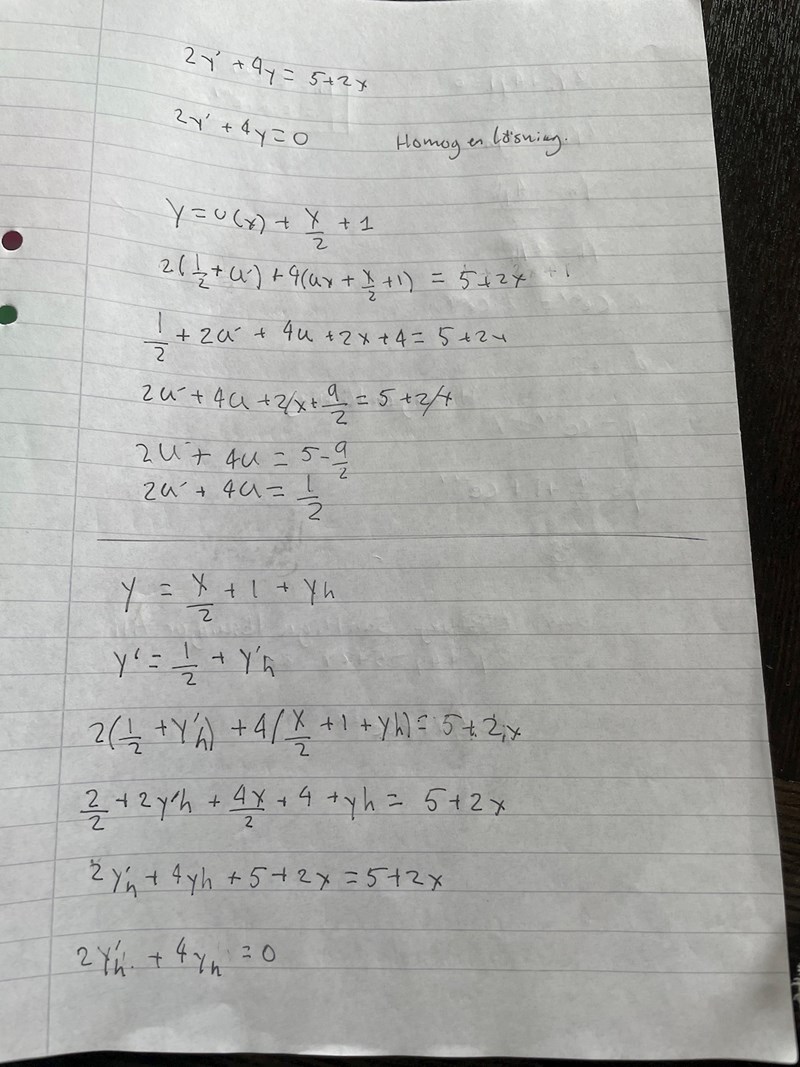 2y' + 4y = 5+2x
2y' + 4y = 0 Homogen lösning.
y = u(x) + x/2 + 1
2(1/2 + u') + 4(ux + x/2 + 1) = 5+2x
1/2 + 2u' + 4u + 2x + 4 = 5+2x
2u' + 4u + 2x + 9/2 = 5+2x
2u' + 4u = 5 - 9/2
2u' + 4u = 1/2
y = x/2 + 1 + yh
y' = 1/2 + y'h
2(1/2 + y'h) + 4(x/2 + 1 + yh) = 5+2x
2/2 + 2y'h + 4x/2 + 4 + yh = 5+2x
2y'h + 4yh + 5 + 2x = 5+2x
2y'h + 4yh = 0